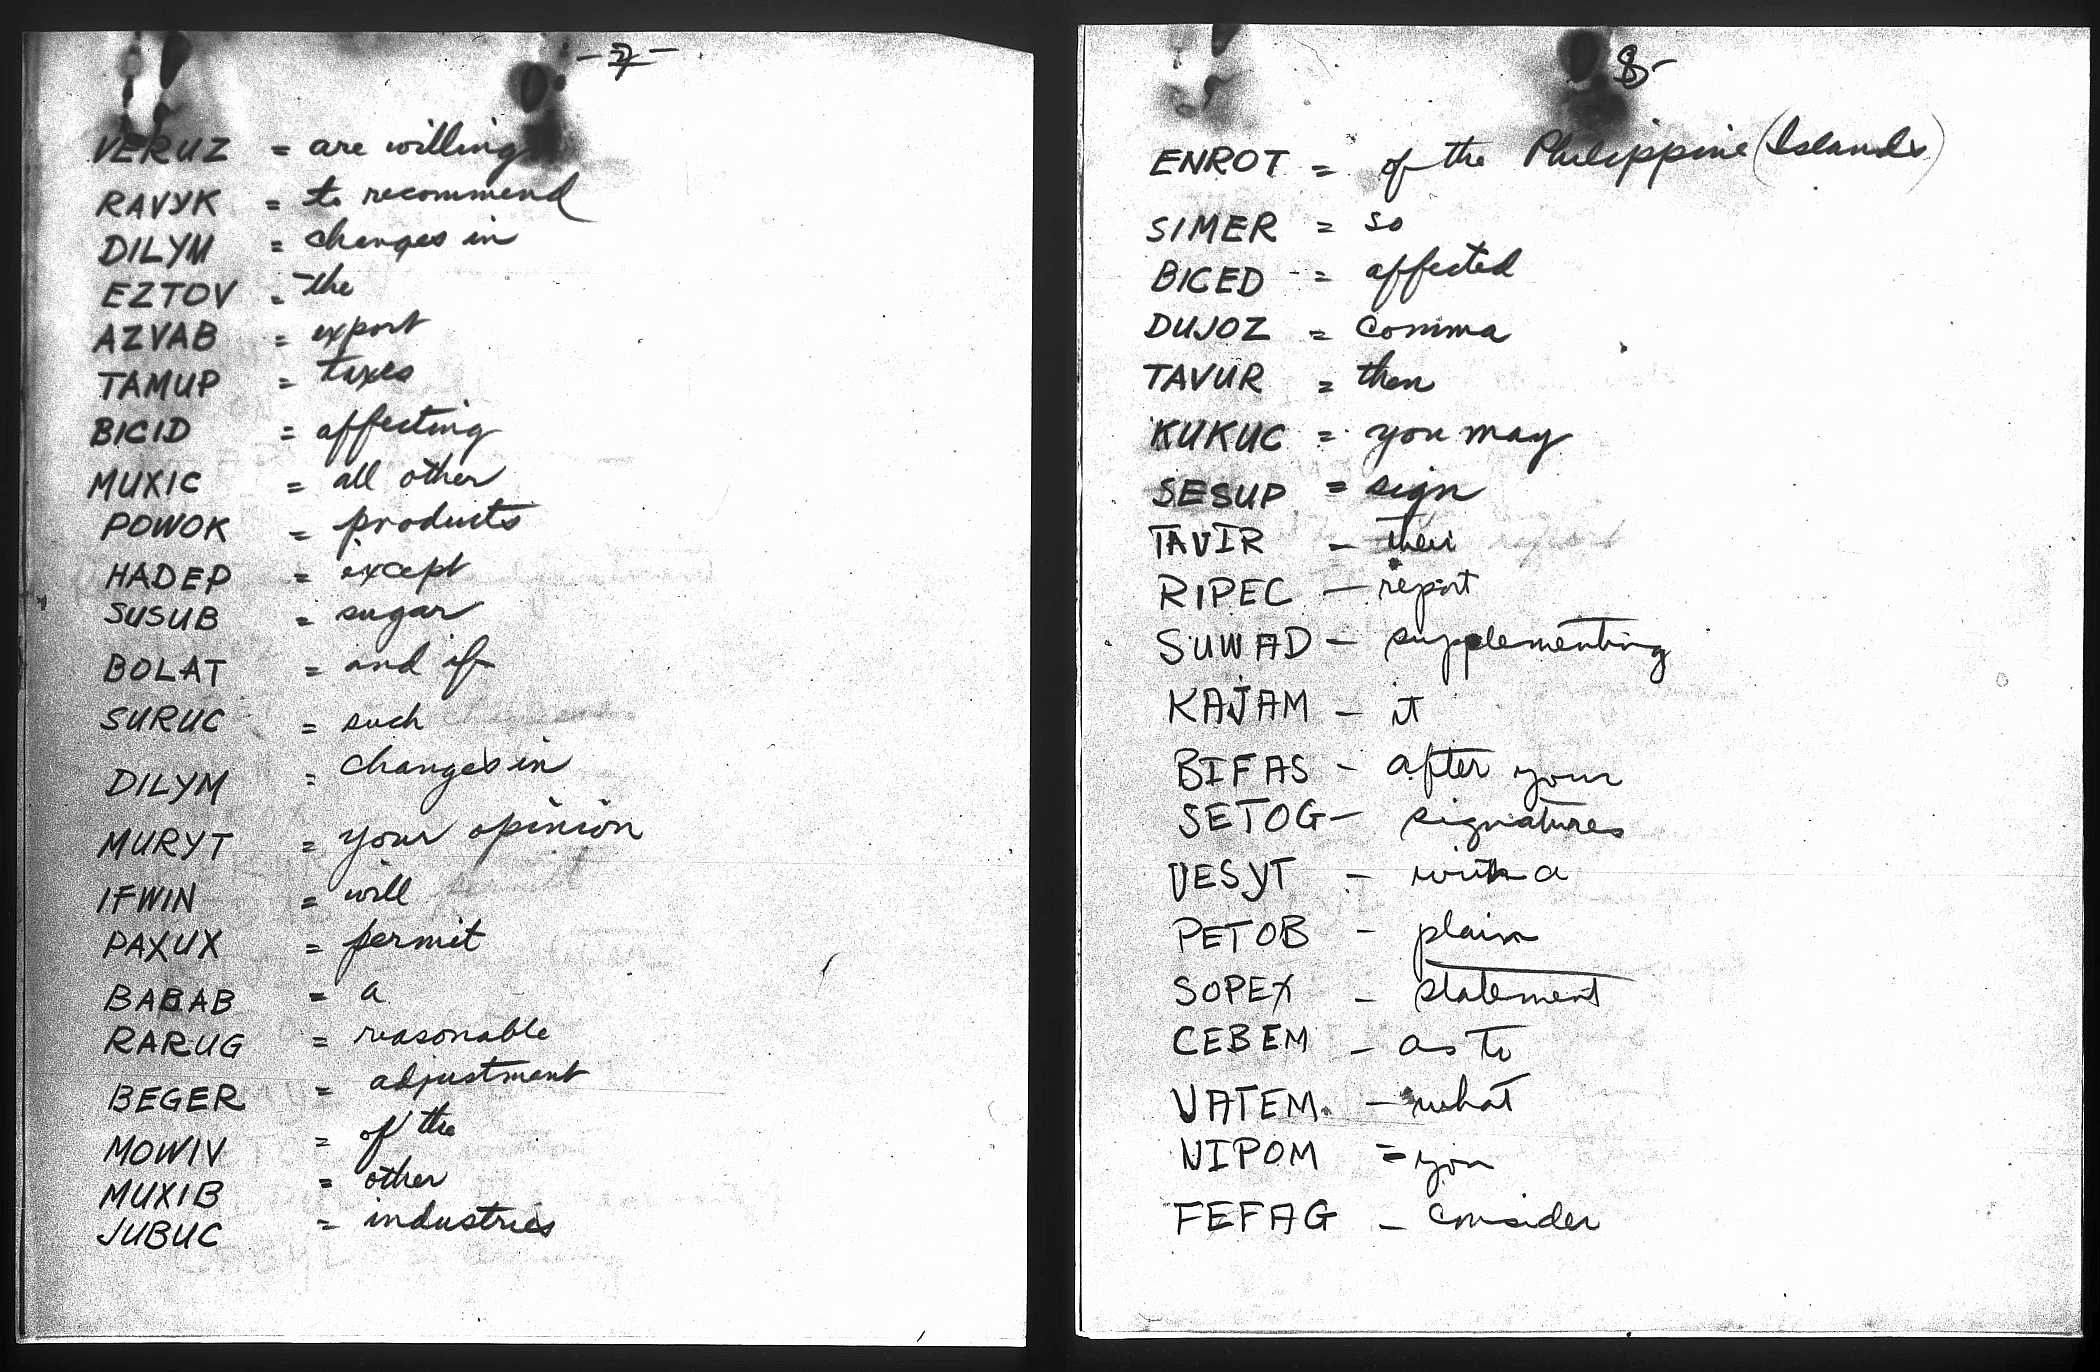 -7-
VERUZ = are willing
RAVYK = to recommend
DILYM = changes in
EZTOV = the
AZVAB = export
TAMUP = taxes
BICID = affecting
MUXIC = all other
POWOK = products
HADEP = except
SUSUB = sugar
BOLAT = and if
SURUC = such
DILYM = changes in
MURYT = your opinion
IFWIN = will
PAXUX = permit
BABAB = a
RARUG = reasonable
BEGER = adjustment
MOWIV = of the
MUXIB = other
JUBUC = industries
8-
ENROT = of the Philippine (Islands)
SIMER = so
BICED = affected
DUJOZ = comma
TAVUR = then
KUKUC = you may
SESUP = sign
TAVIR - their
RIPEC - report
SUWAD - supplementing
KAJAM - it
BIFAS - after your
SETOG - signatures
VESYT - with a
PETOB - plain
SOPEX - statement
CEBEM - as to
VATEM - what
NIPOM = you
FEFAG - consider